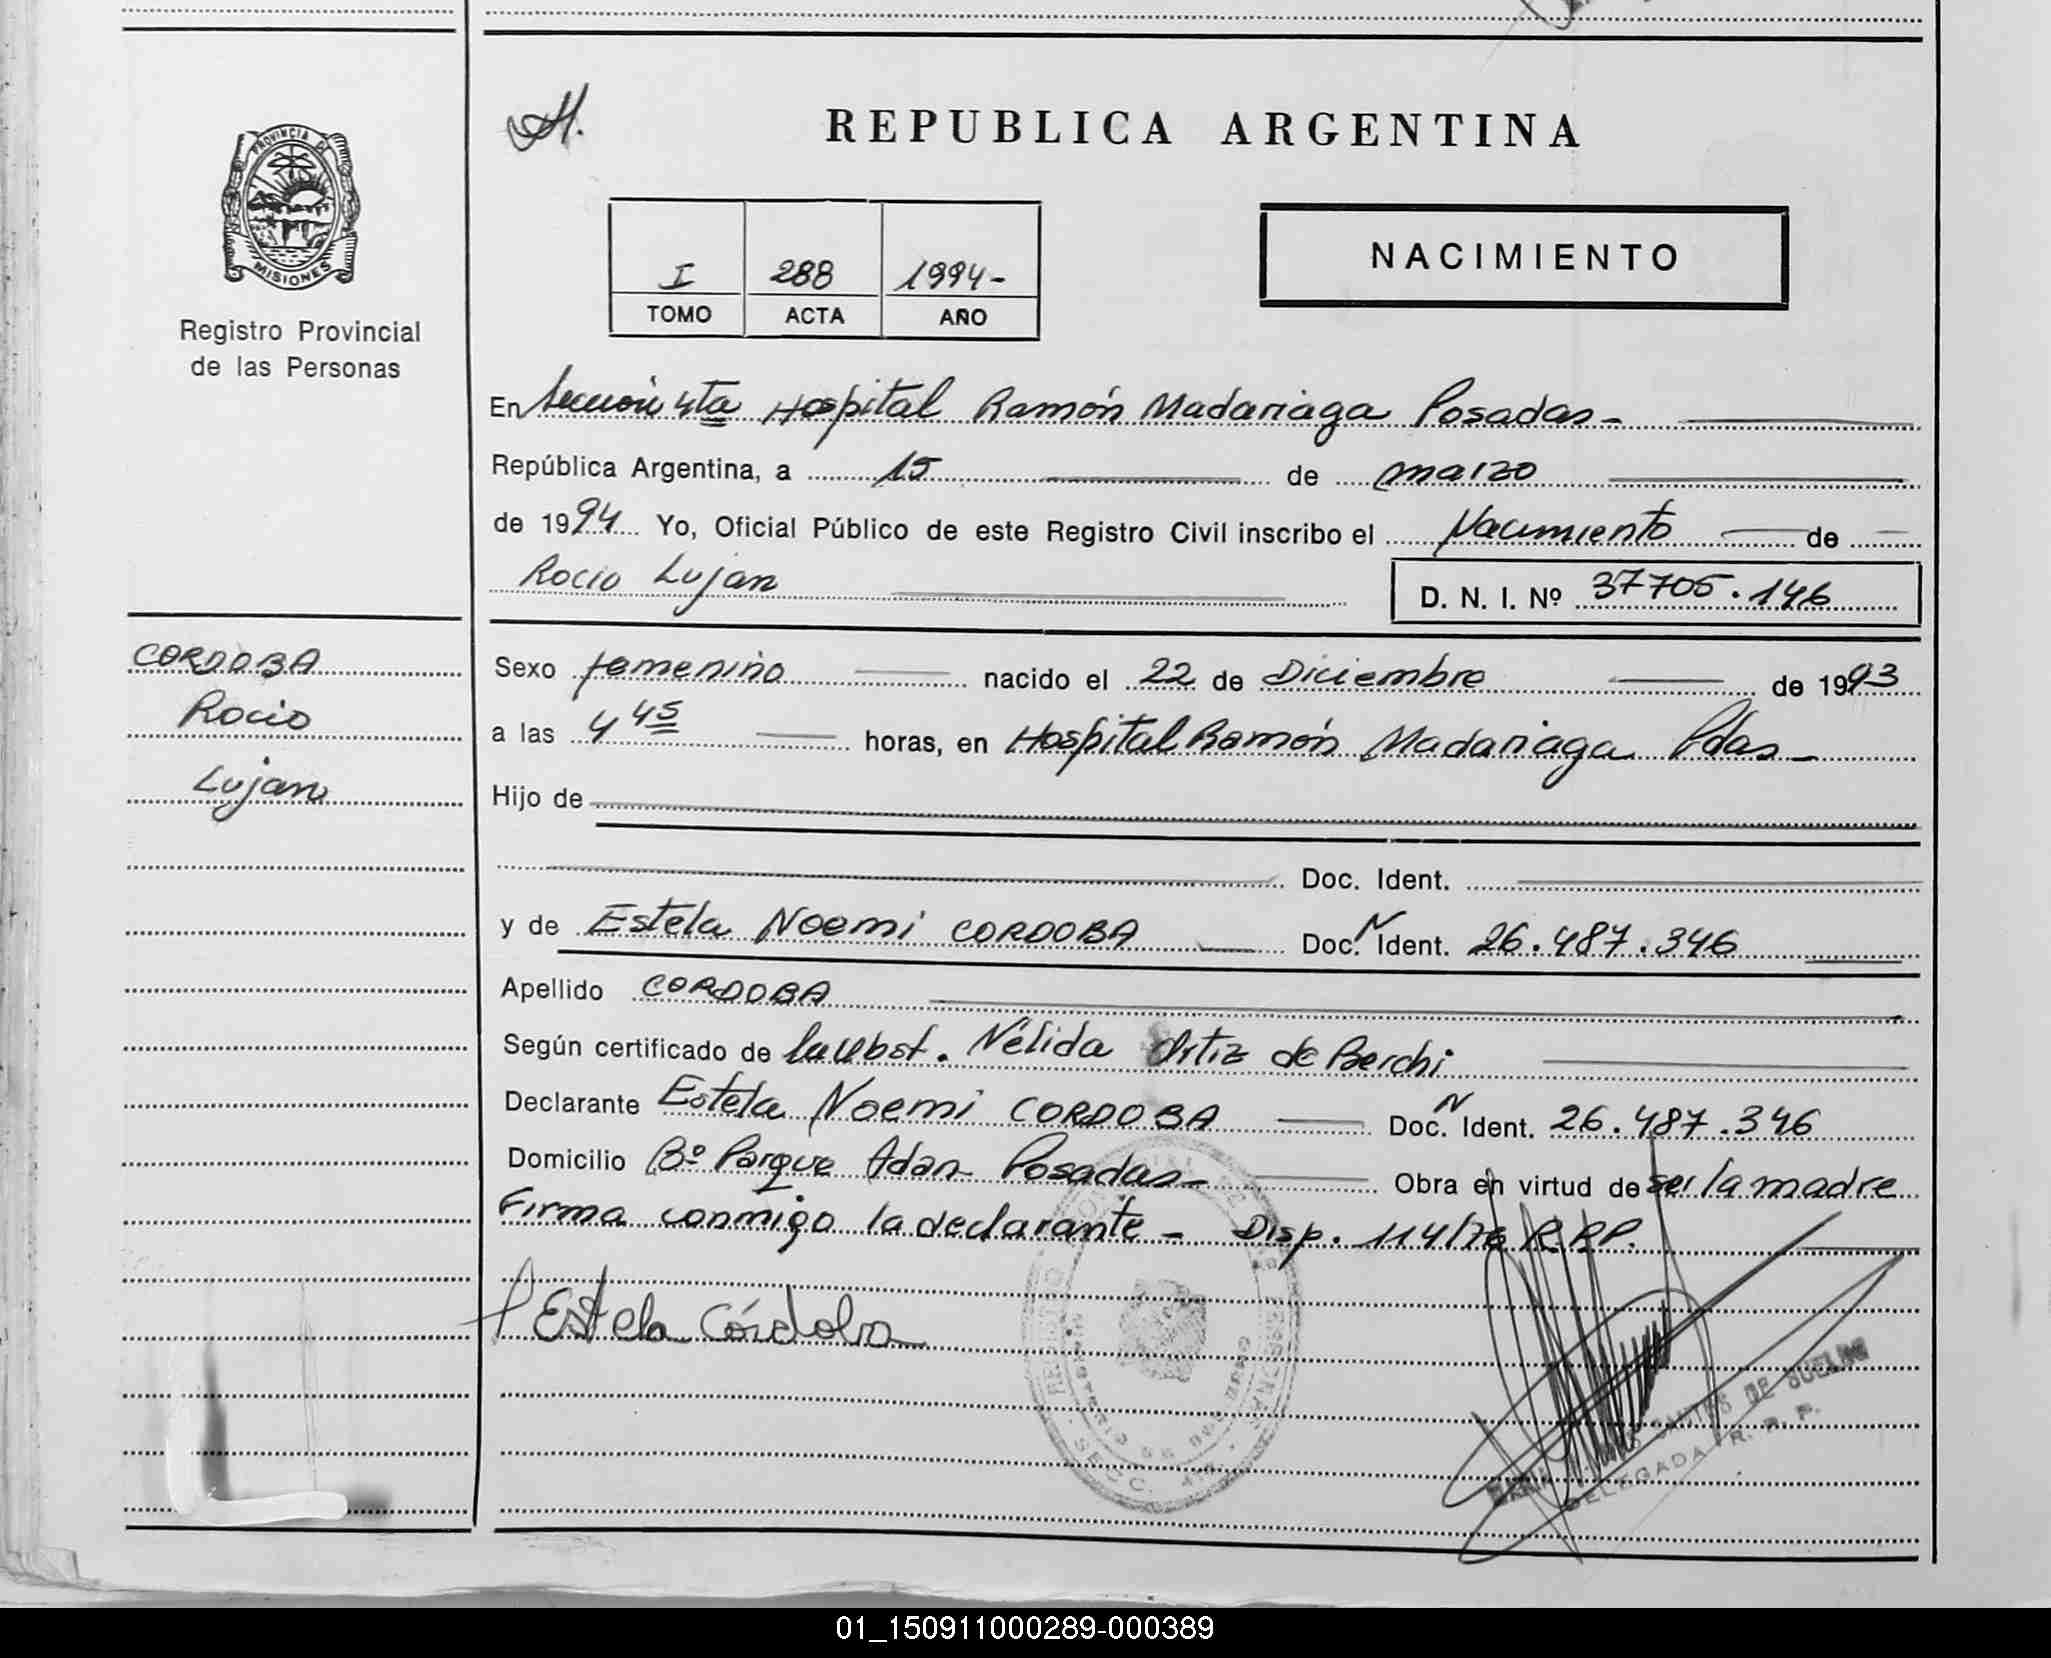 REPUBLICA ARGENTINA
PROVINCIA DE
MISIONES
Registro Provincial
de las Personas
I 288 1994-
TOMO ACTA AÑO
NACIMIENTO
En Sección 4ta Hospital Ramón Madariaga Posadas-
República Argentina, a 15 de marzo
de 1994 Yo, Oficial Público de este Registro Civil inscribo el Nacimiento de
Rocio Lujan
D. N. I. Nº 37705.146
CORDOBA
Rocio
Lujan
Sexo femenino nacido el 22 de Diciembre de 1993
a las 4 45 horas, en Hospital Ramón Madariaga Pdas-
Hijo de
Doc. Ident.
y de Estela Noemi CORDOBA Doc. N Ident. 26.487.346
Apellido CORDOBA
Según certificado de la obst. Nélida Ortiz de Berchi
Declarante Estela Noemi CORDOBA Doc. N Ident. 26.487.346
Domicilio Bº Parque Adan Posadas- Obra en virtud de ser la madre
Firma conmigo la declarante - Disp. 114/76 R.P.P.
Estela Córdoba
SANTOS DE
DELEGADA R. P. P.
01_150911000289-000389